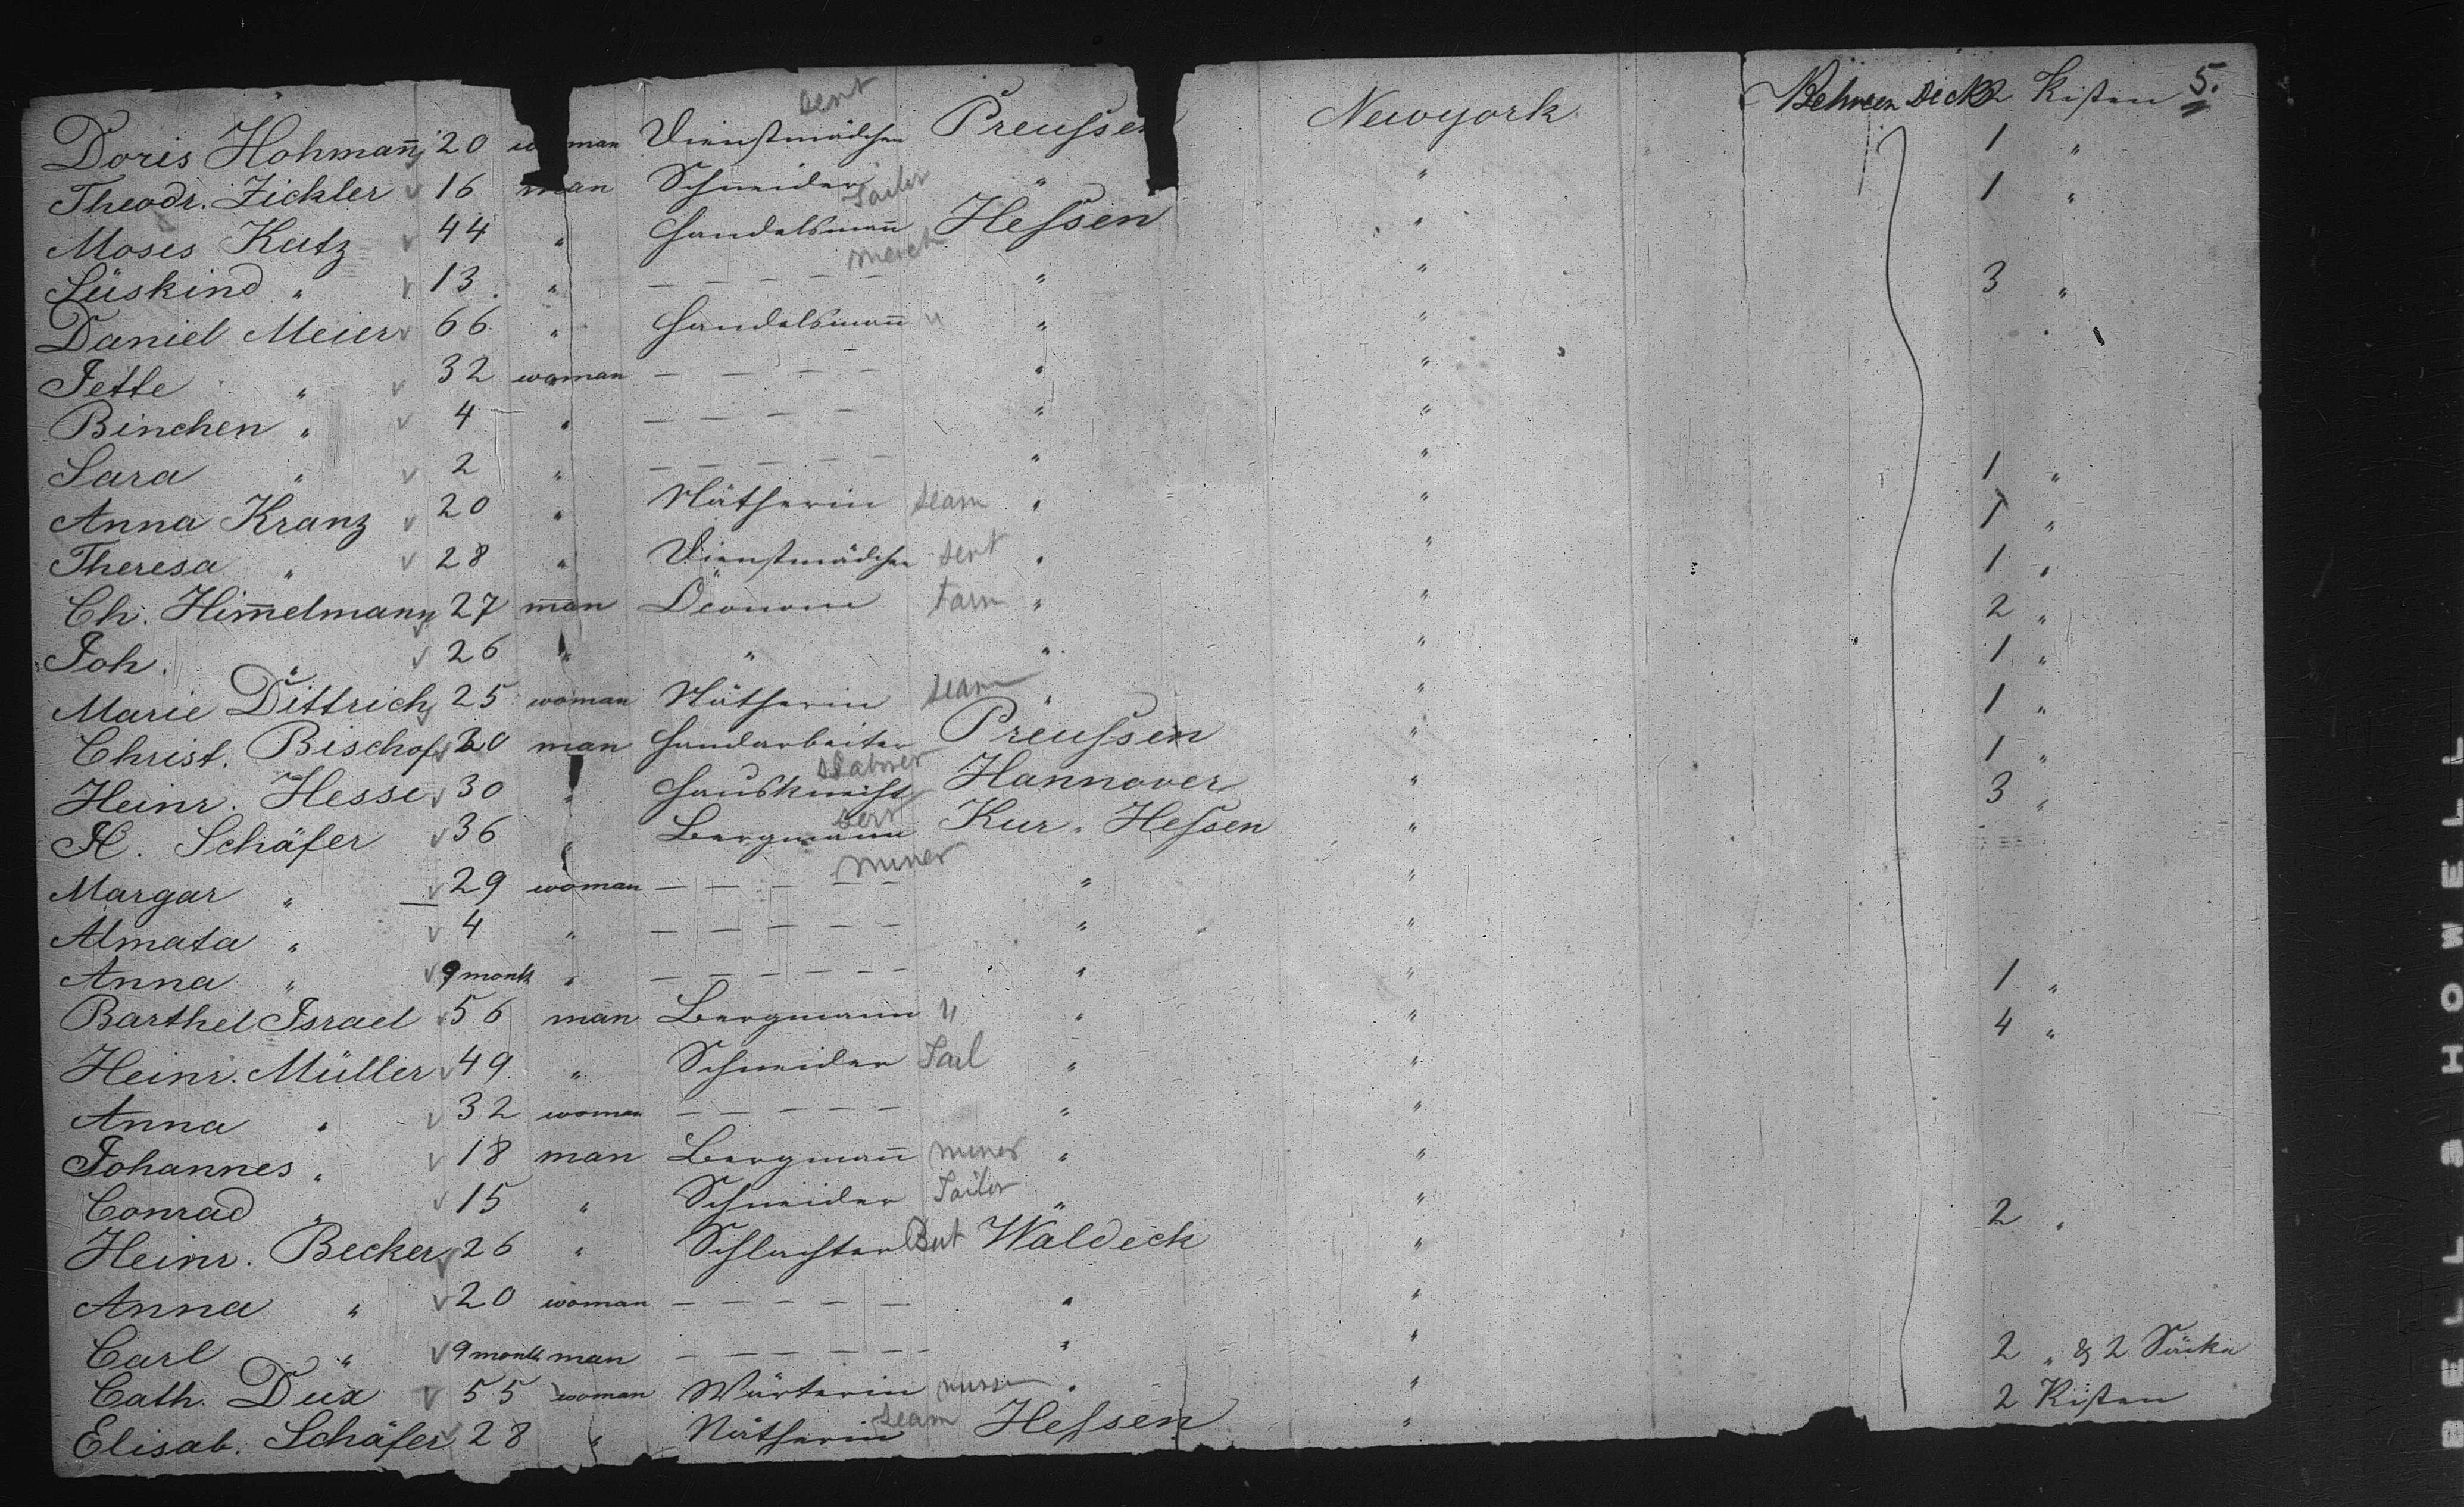 5.
Doris Hohmañ 20 woman Dienstmädchen sert Preussen Newyork Between Deck 2 Kisten
Theodr. Zickler 16 man Schneider Tailor " " 1 "
Moses Katz 44 " Handelsmañ merch Hessen " 1 "
Süskind " 13 " — — — — " "
Daniel Meier 66 " Handelsmañ " " " 3 "
Jette " 32 woman — — — — " "
Binchen " 4 " — — — — " "
Sara " 2 " — — — — — " "
Anna Kranz 20 " Nätherin seam " " 1 "
Theresa " 28 " Dienstmädchen sert " " 1 "
Ch. Him̄elmann 27 man Öconom farm " " 1 "
Joh. " 26 " " " " 2 "
Marie Dittrich 25 woman Nätherin seam " " 1 "
Christ. Bischof 20 man Handarbeiter Preussen " 1 "
Heinr. Hesse 30 " Hausknecht sert Hannover " 1 "
H. Schäfer 36 " Bergmann miner Kur. Hessen " 3 "
Margar " 29 woman — — — — — " "
Almata " 4 " — — — — — " "
Anna " 9 month " — — — — — — " "
Barthel Israel 56 man Bergmann " " " 1 "
Heinr. Müller 49 " Schneider Tail " " 4 "
Anna " 32 woman — — — — — " "
Johannes " 18 man Bergmañ miner " "
Conrad " 15 " Schneider Tailor " "
Heinr. Becker 26 " Schlachter But Waldeck " 2 "
Anna " 20 woman — — — — — " "
Carl " 9 month man — — — — — — " "
Cath. Dux 55 woman Wärterin nurse " " 2 " & 2 Säcke
Elisab. Schäfer 28 " Nätherin seam Hessen " 2 Kisten
BELL & HOWELL